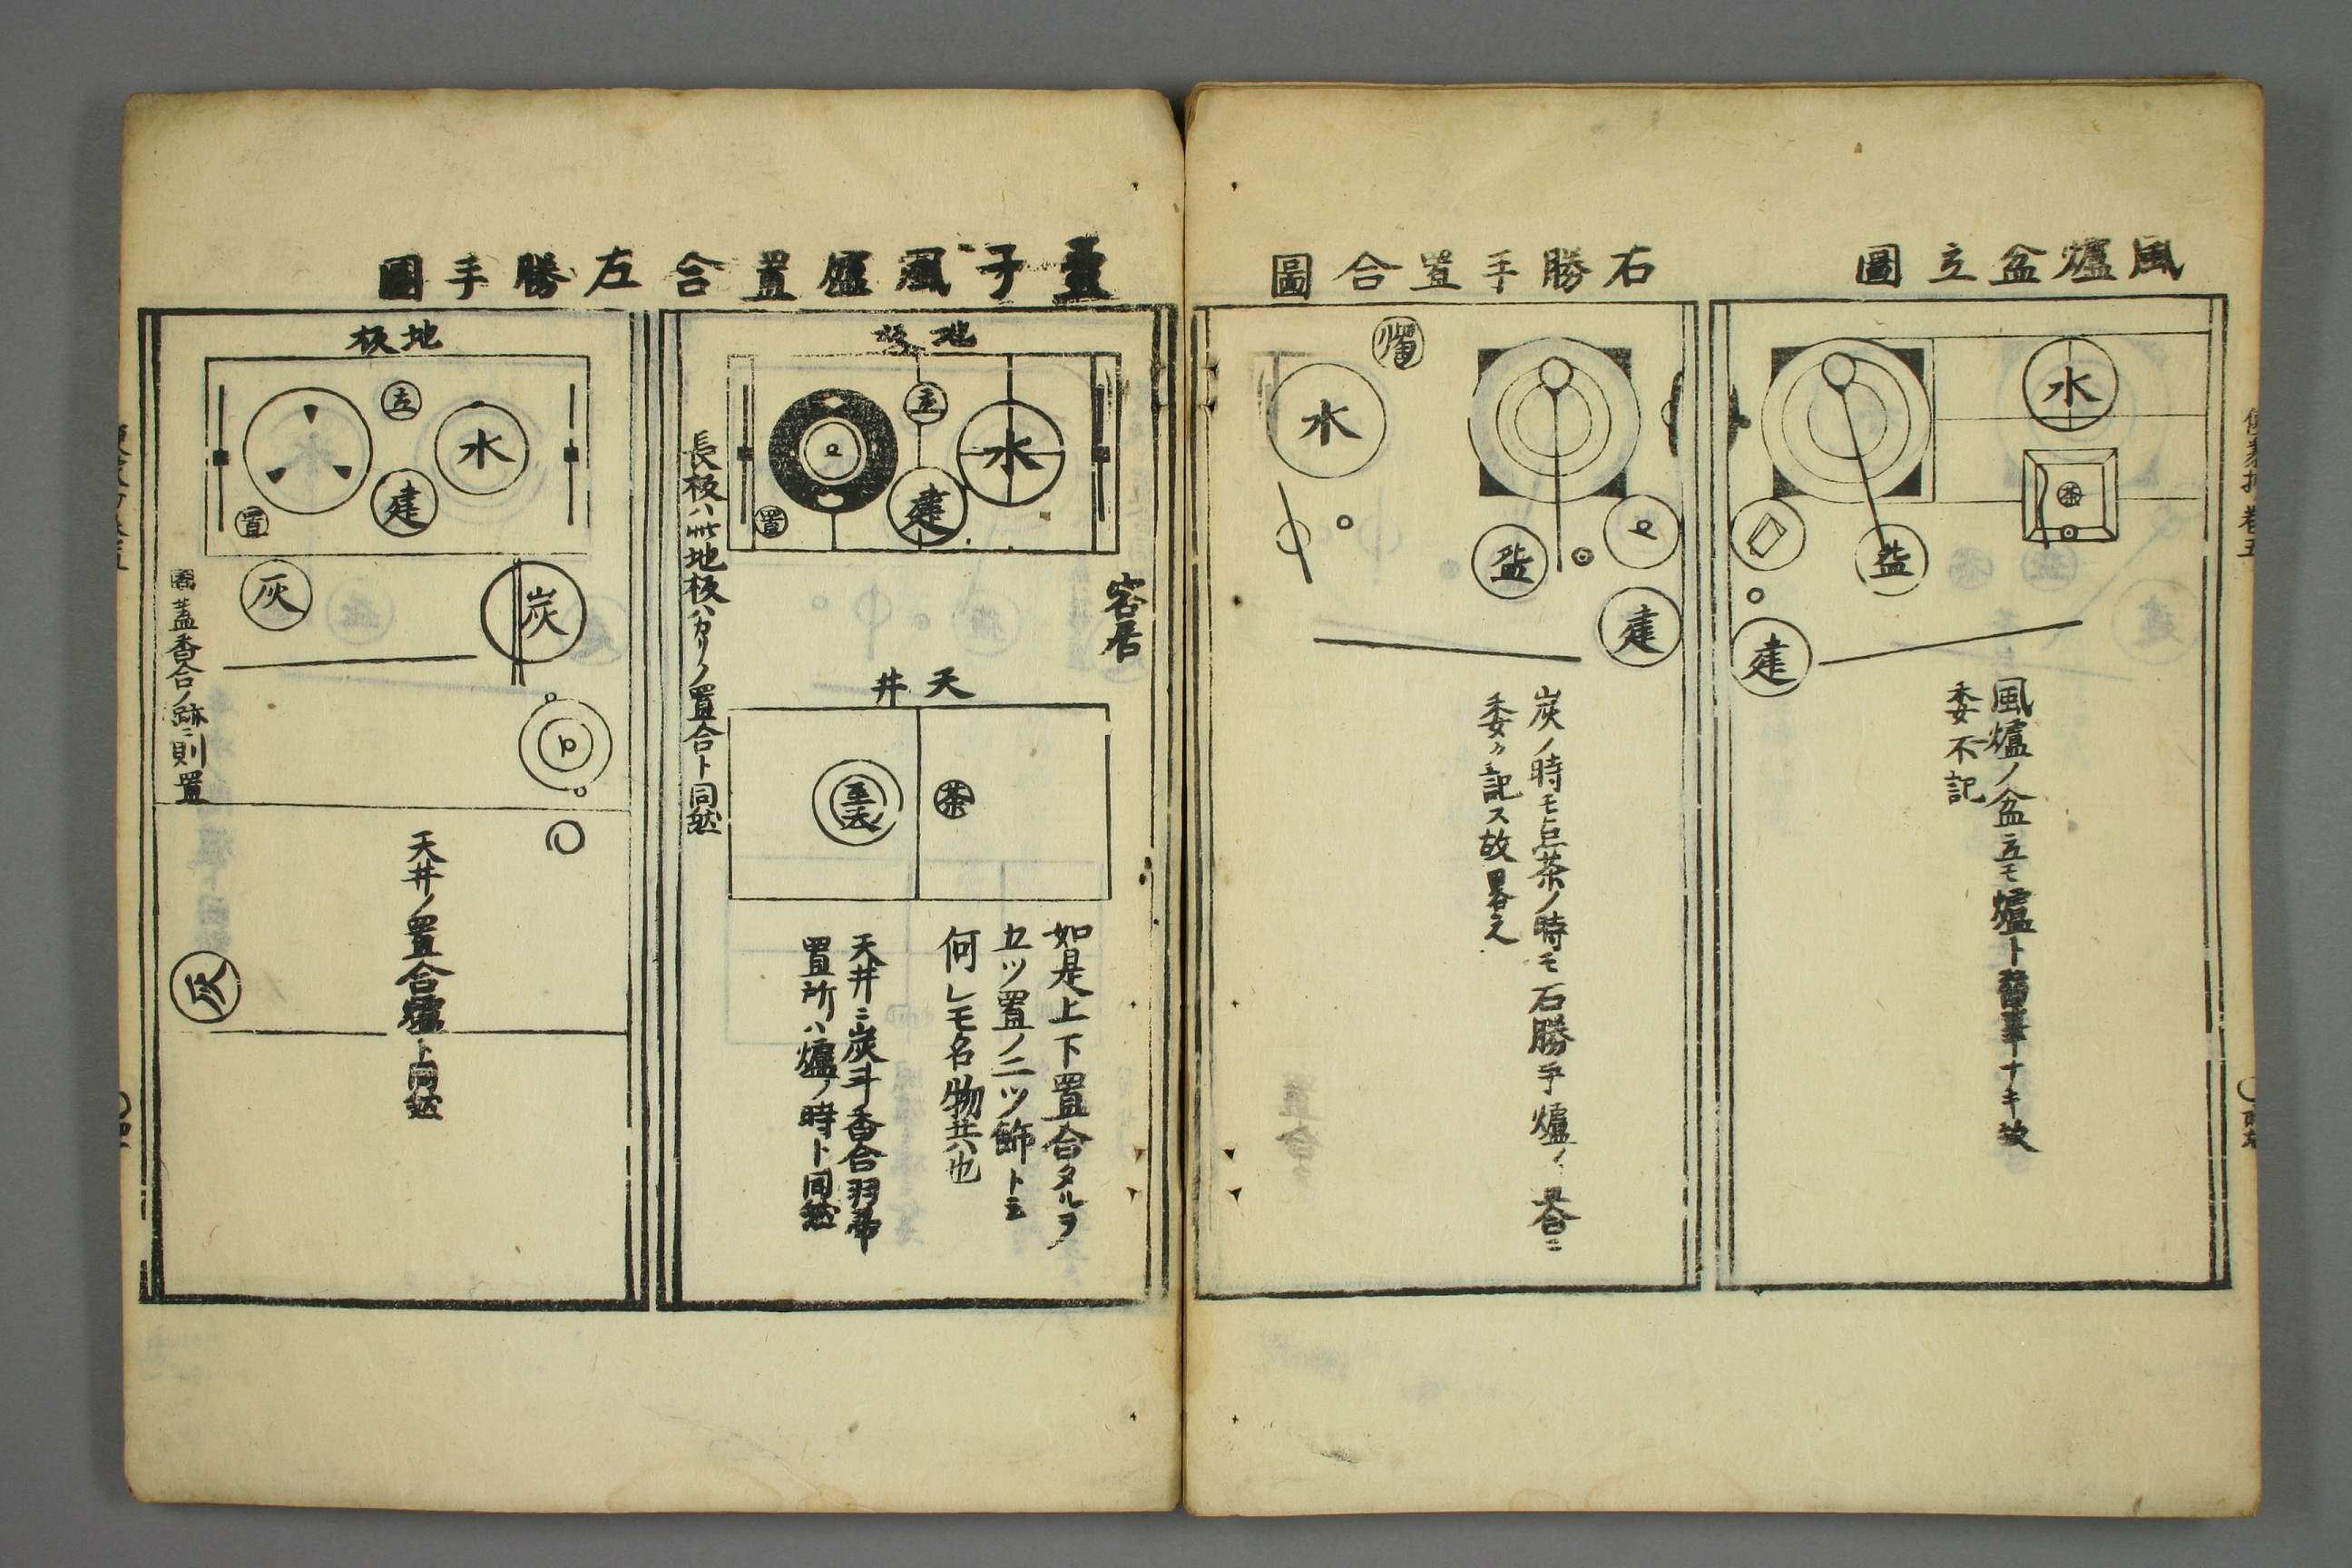 風爐盆立圖
水
茶
盆
建
風爐ノ盆立モ爐ト替事ナキ故
委不記
右勝手置合圖
燭
水
盆
建
炭ノ時モ点茶ノ時モ右勝手爐ノ置合ニ
委ク記ス故畧之
臺子風爐置合左勝手圖
地板
水
立
建
置
客居
天井
茶
天
如是上下置合タルヲ
五ツ置ノ二ツ飾ト云
何レモ名物共也
天井ニ炭斗香合羽箒
置所ハ爐ノ時ト同然
長板ハ此地板ハカリノ置合ト同然
地板
水
立
建
置
炭
灰
蓋香合ノ跡ニ則置
天井ノ置合爐ト同然
灰